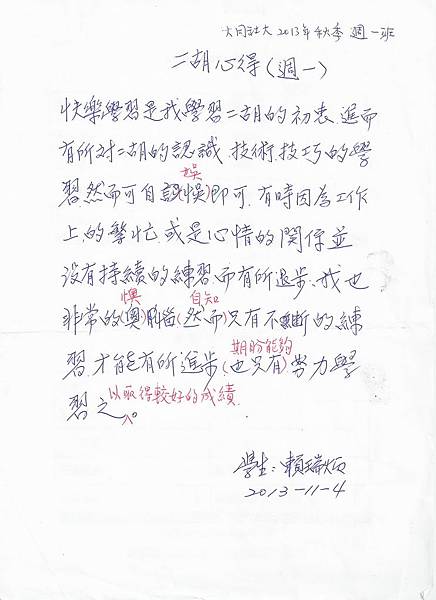 大同社大 2013年秋季 週一班
二胡心得(週一)
快樂學習是我學習二胡的初衷、進而
有所對二胡的認識、技術、技巧的學
娛
習、然而可自誤悞即可、有時因為工作
上的繁忙、或是心情的関係並
沒有持續的練習、而有所退步、我也
懊 自知
非常的(奧)腦(然而)只有不斷的練
期盼能夠
習、才能有所進步(也只有)努力學
以取得較好的成績
習之。
學生:賴瑞
2013-11-4